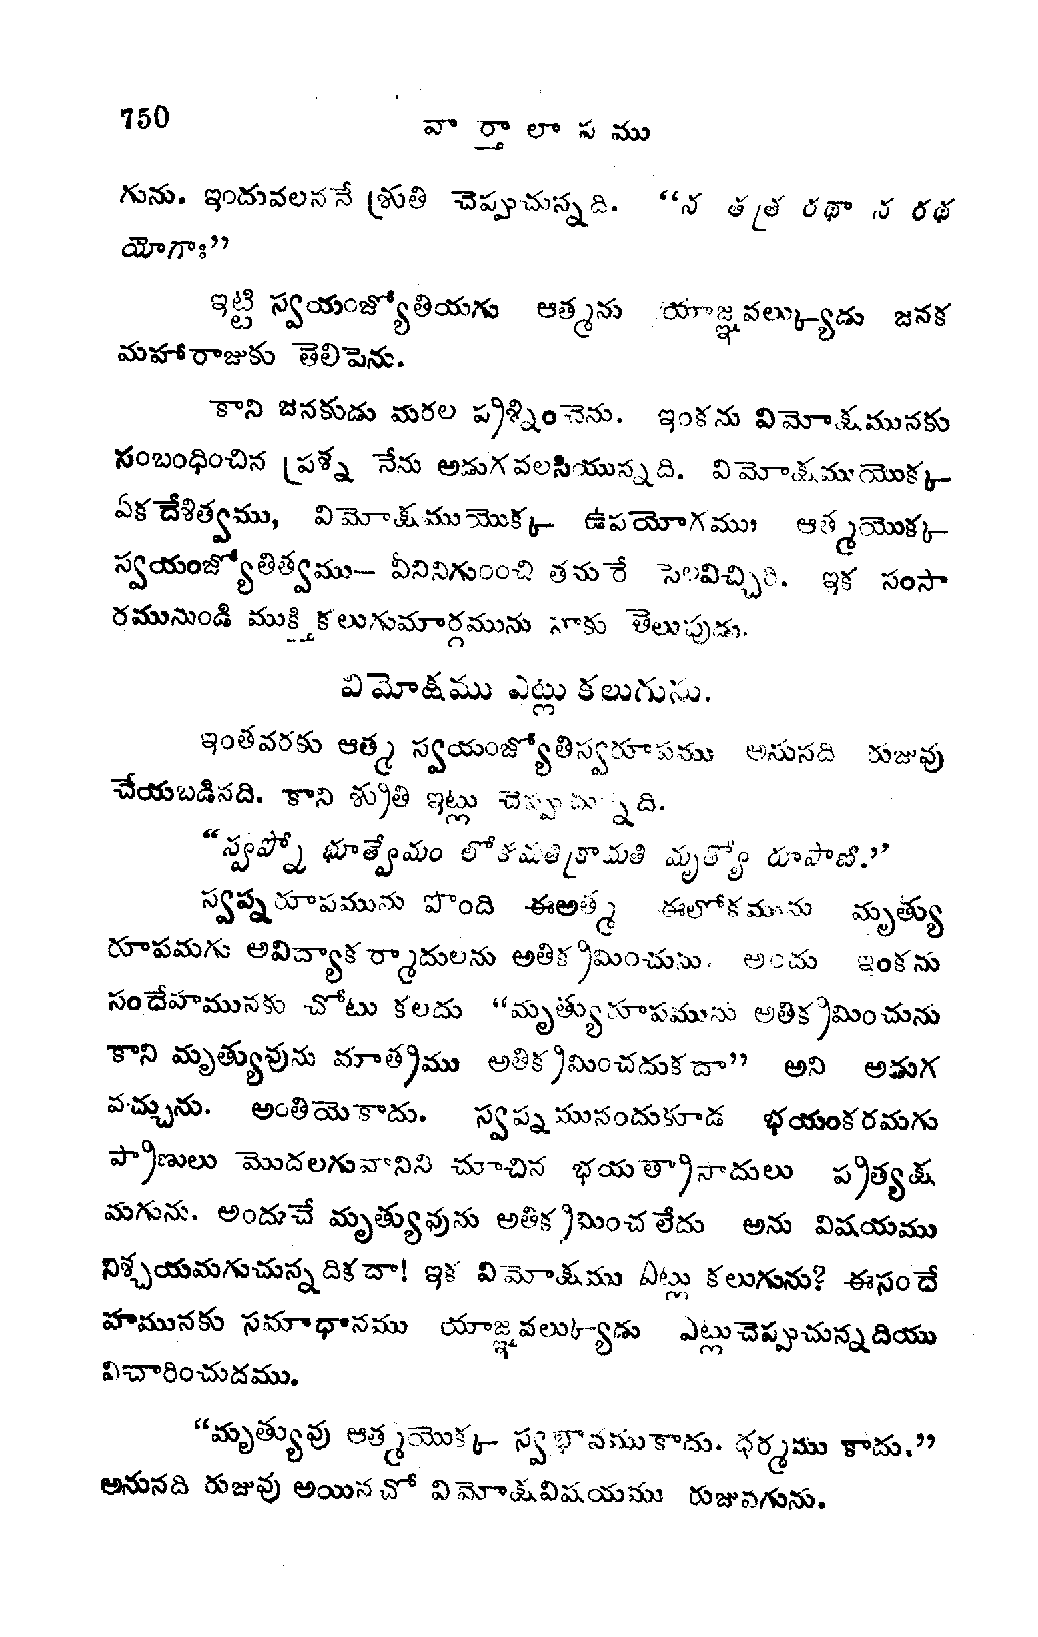 750
వార్తాలాపము
గును. ఇందువలననే శ్రుతి చెప్పుచున్నది. “న తత్ర రథా న రథ
యోగాః”
ఇట్టి స్వయంజ్యోతియగు ఆత్మను యాజ్ఞవల్క్యుడు జనక
మహారాజుకు తెలిపెను.
కాని జనకుడు మరల ప్రశ్నించెను. ఇంకను విమోక్షమునకు
సంబంధించిన ప్రశ్న నేను అడుగవలసియున్నది. విమోక్షముయొక్క
ఏకదేశిత్వము, విమోక్షముయొక్క ఉపయోగము, ఆత్మయొక్క
స్వయంజ్యోతిత్వము— వీనినిగురించి తమరే సెలవిచ్చిరి. ఇక సంసా
రమునుండి ముక్తి కలుగుమార్గమును నాకు తెలుపుడు.
విమోక్షము ఎట్లు కలుగును.
ఇంతవరకు ఆత్మ స్వయంజ్యోతిస్వరూపము అనునది రుజువు
చేయబడినది. కాని శ్రుతి ఇట్లు చెప్పుచున్నది.
“స్వప్నో భూత్వేమం లోకమతిక్రామతి మృత్యో రూపాణి.”
స్వప్నరూపమును పొంది ఈఆత్మ ఈలోకమును మృత్యు
రూపమగు అవిద్యాకర్మాదులను అతిక్రమించును. అందు ఇంకను
సందేహమునకు చోటు కలదు “మృత్యురూపమును అతిక్రమించును
కాని మృత్యువును మాత్రము అతిక్రమించదుకదా” అని అడుగ
వచ్చును. అంతియెకాదు. స్వప్నమునందుకూడ భయంకరమగు
ప్రాణులు మొదలగువానిని చూచిన భయత్రాసాదులు ప్రత్యక్ష
మగును. అందుచే మృత్యువును అతిక్రమించలేదు అను విషయము
నిశ్చయమగుచున్నదికదా! ఇక విమోక్షము ఏట్లు కలుగును? ఈసందే
హమునకు సమాధానము యాజ్ఞవల్క్యుడు ఎట్లుచెప్పుచున్నదియు
విచారించుదము.
“మృత్యువు ఆత్మయొక్క స్వభావముకాదు. ధర్మము కాదు.”
అనునది రుజువు అయినచో విమోక్షవిషయము రుజువగును.